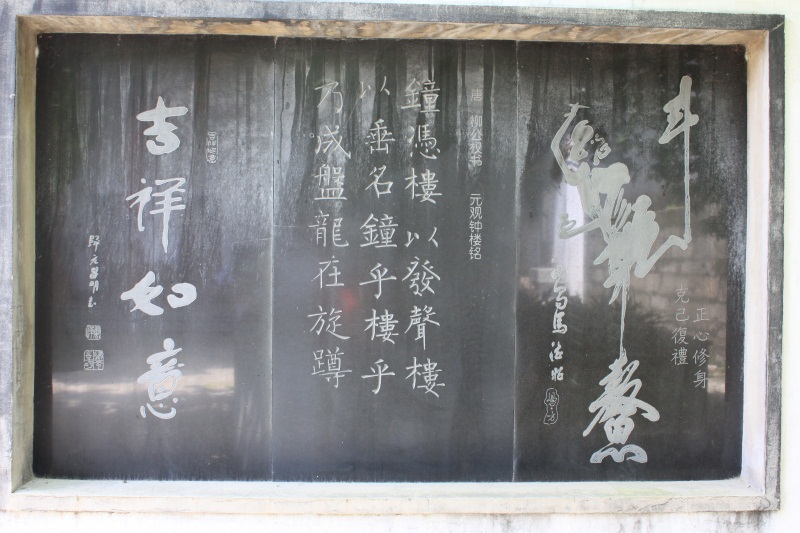 斗
正心修身
克己復禮
鳌
馬德昭
唐 柳公权书 元观钟楼铭
鐘憑樓以發聲樓
以垂名鐘乎樓乎
乃成盤龍在旋蹲
吉祥如意